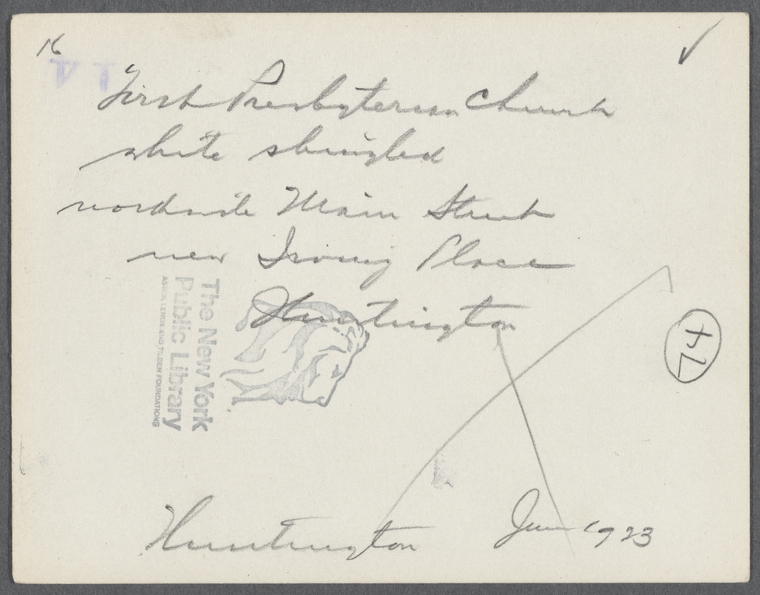 16
14
First Presbyterian Church
white shingled
northside Main Street
near Irving Place
Huntington
The New York
Public Library
ASTOR, LENOX AND TILDEN FOUNDATIONS
74
Huntington June 1923